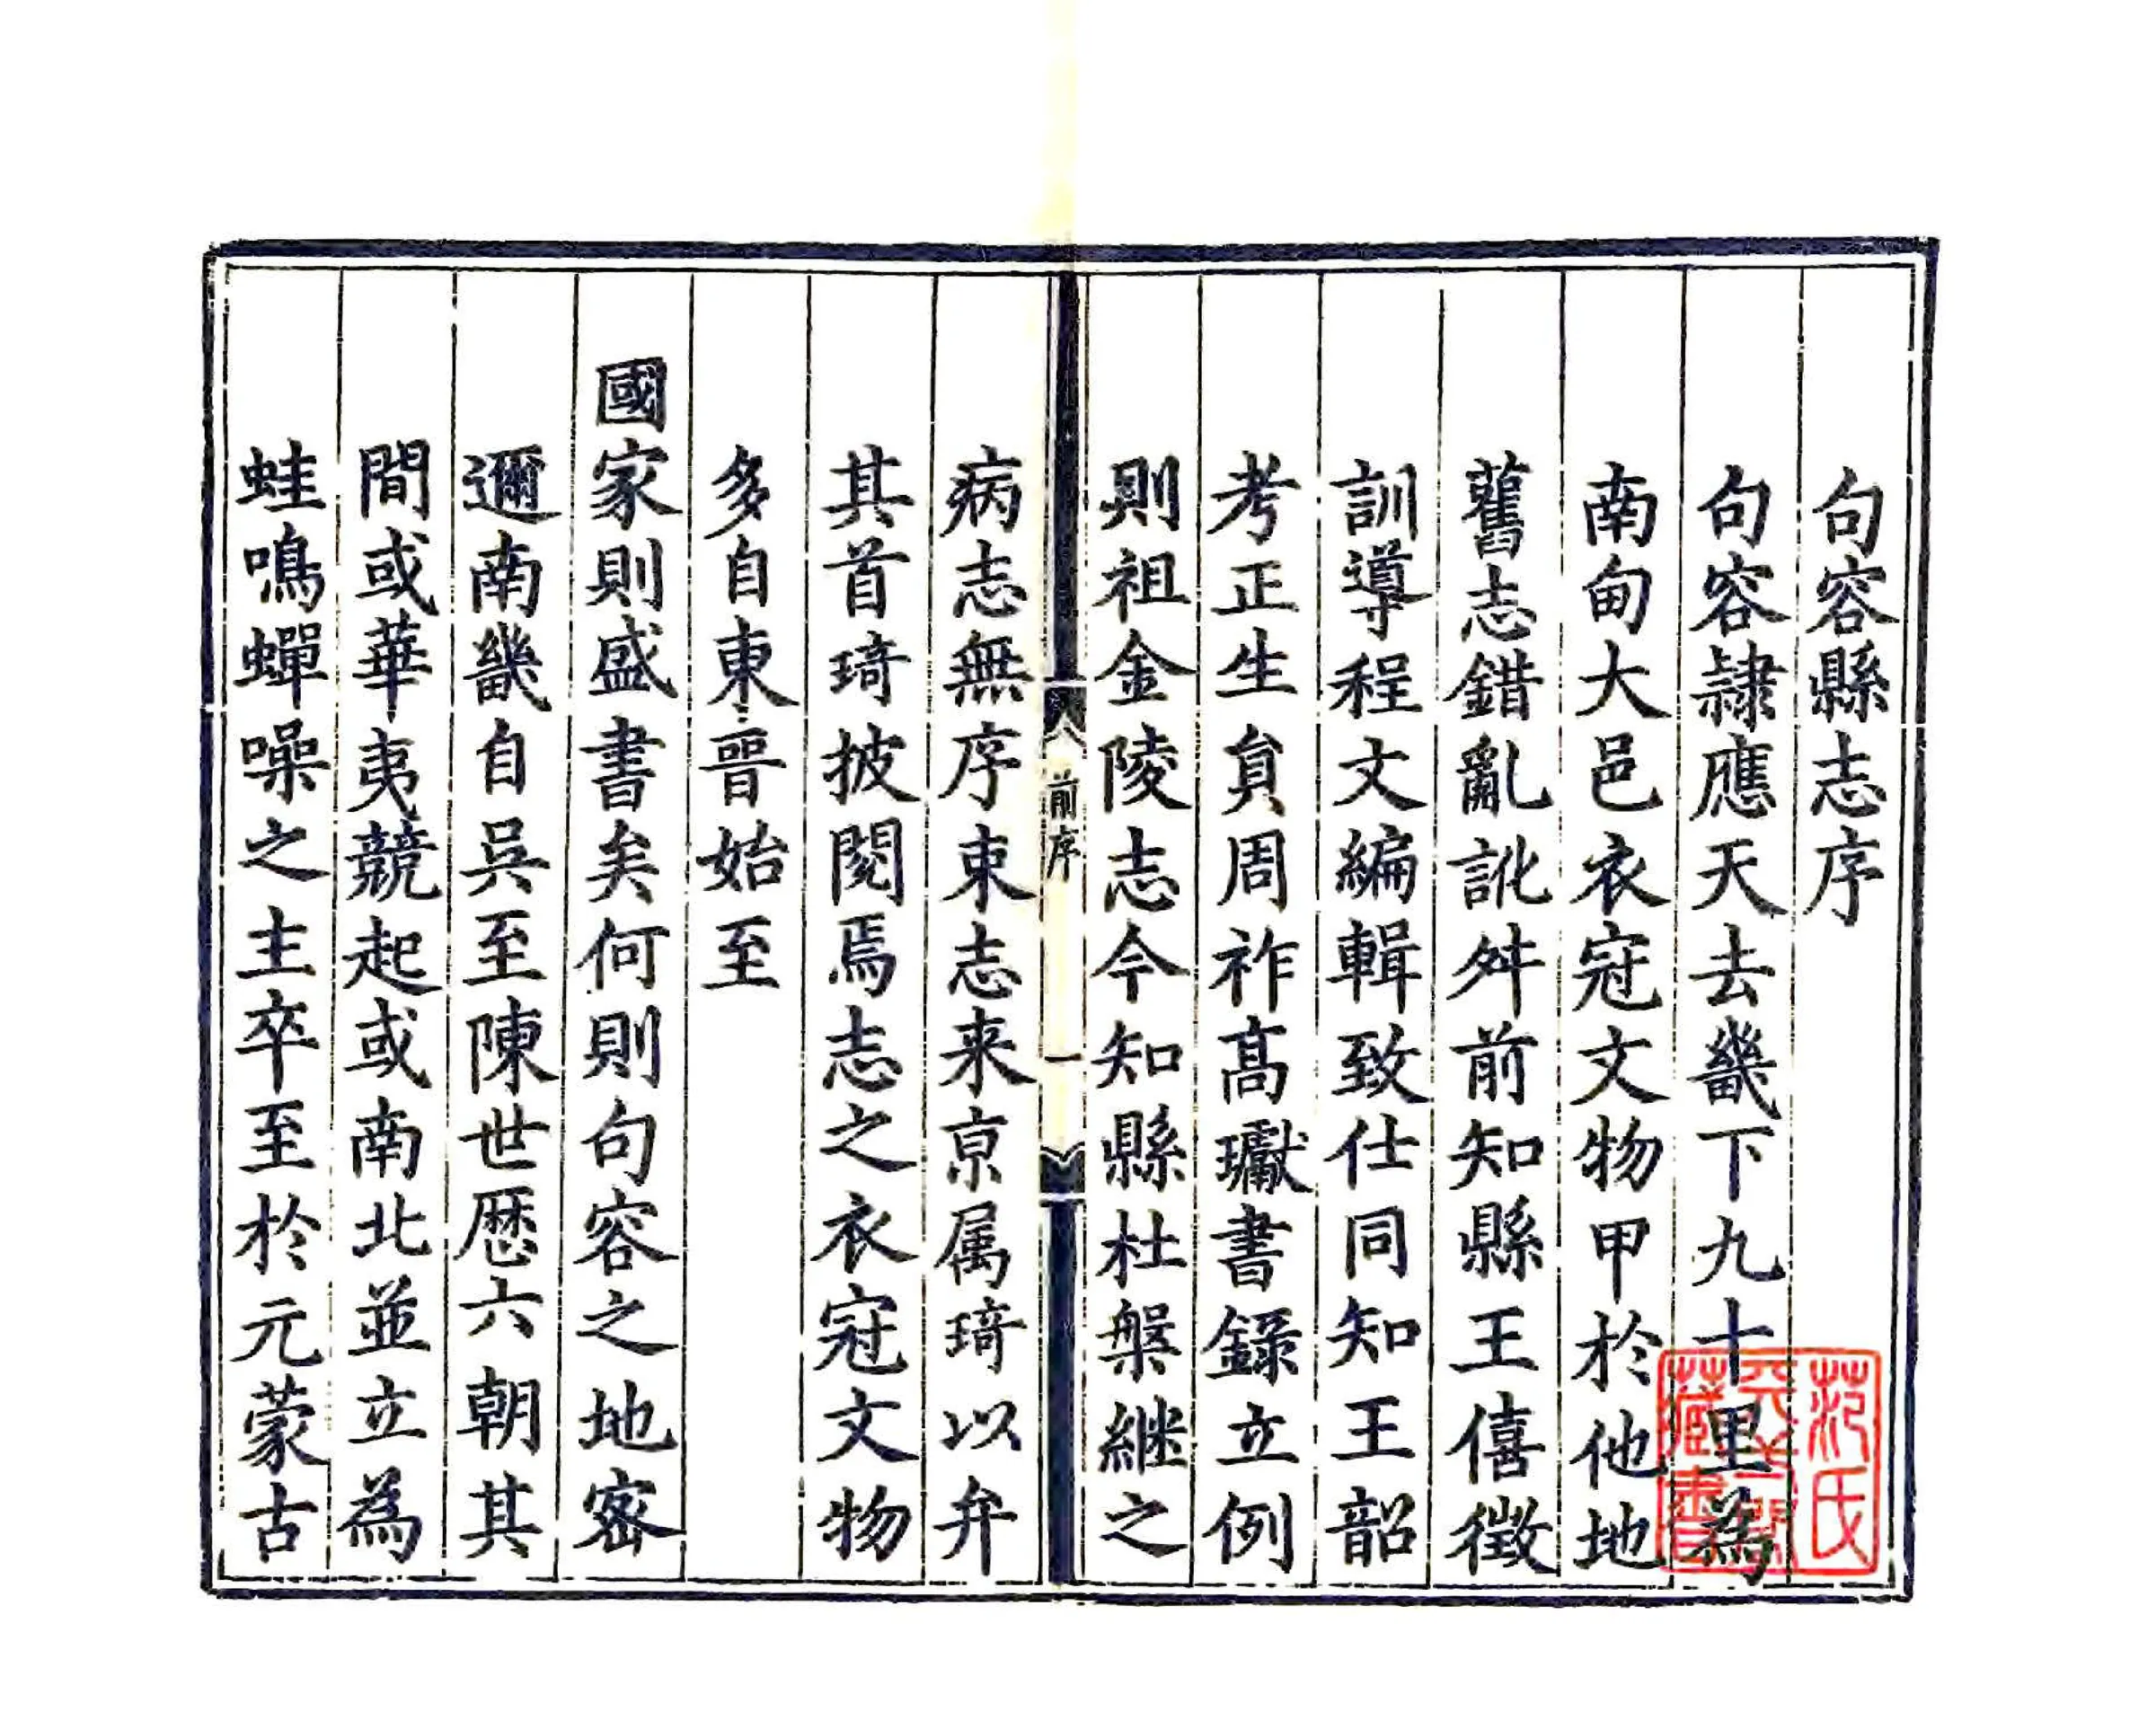 句容縣志序
句容隷應天去畿下九十里為
南甸大邑衣冠文物甲於他地
舊志錯亂訛舛前知縣王僖徵
訓導程文編輯致仕同知王韶
考正生員周祚髙瓛書錄立例
則祖金陵志今知縣杜槃継之
前序
一
病志無序束志来亰属琦以弁
其首琦披閲焉志之衣冠文物
多自東晉始至
國家則盛書矣何則句容之地宻
邇南畿自吳至陳世歴六朝其
間或華夷競起或南北並立為
蛙鳴蟬噪之主卒至於元蒙古
范氏
天一閣
藏書